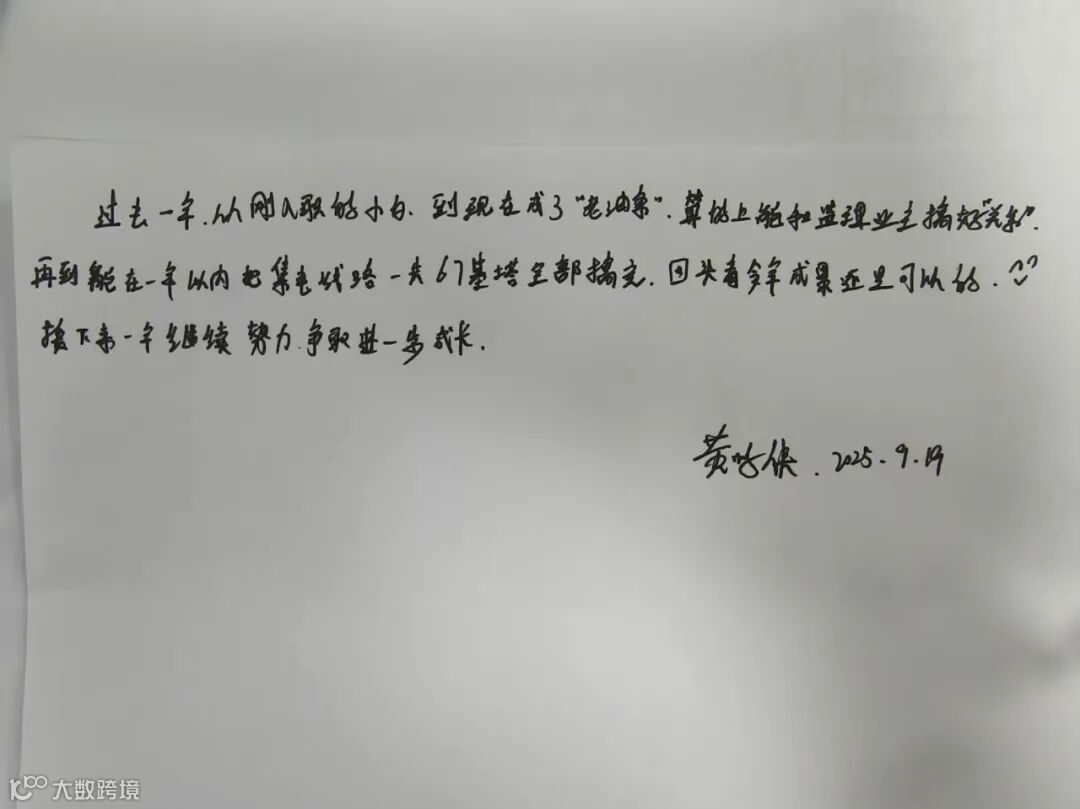 过去一年,从刚入职的小白,到现在成了“老油条”,算的上能和监理业主搞好“关系”.
再到能在一年以内把集电线路一共67基塔全部搞完,回头看今年成果还是可以的.
接下来一年继续努力,争取进一步成长.
2025.9.19
大数跨境